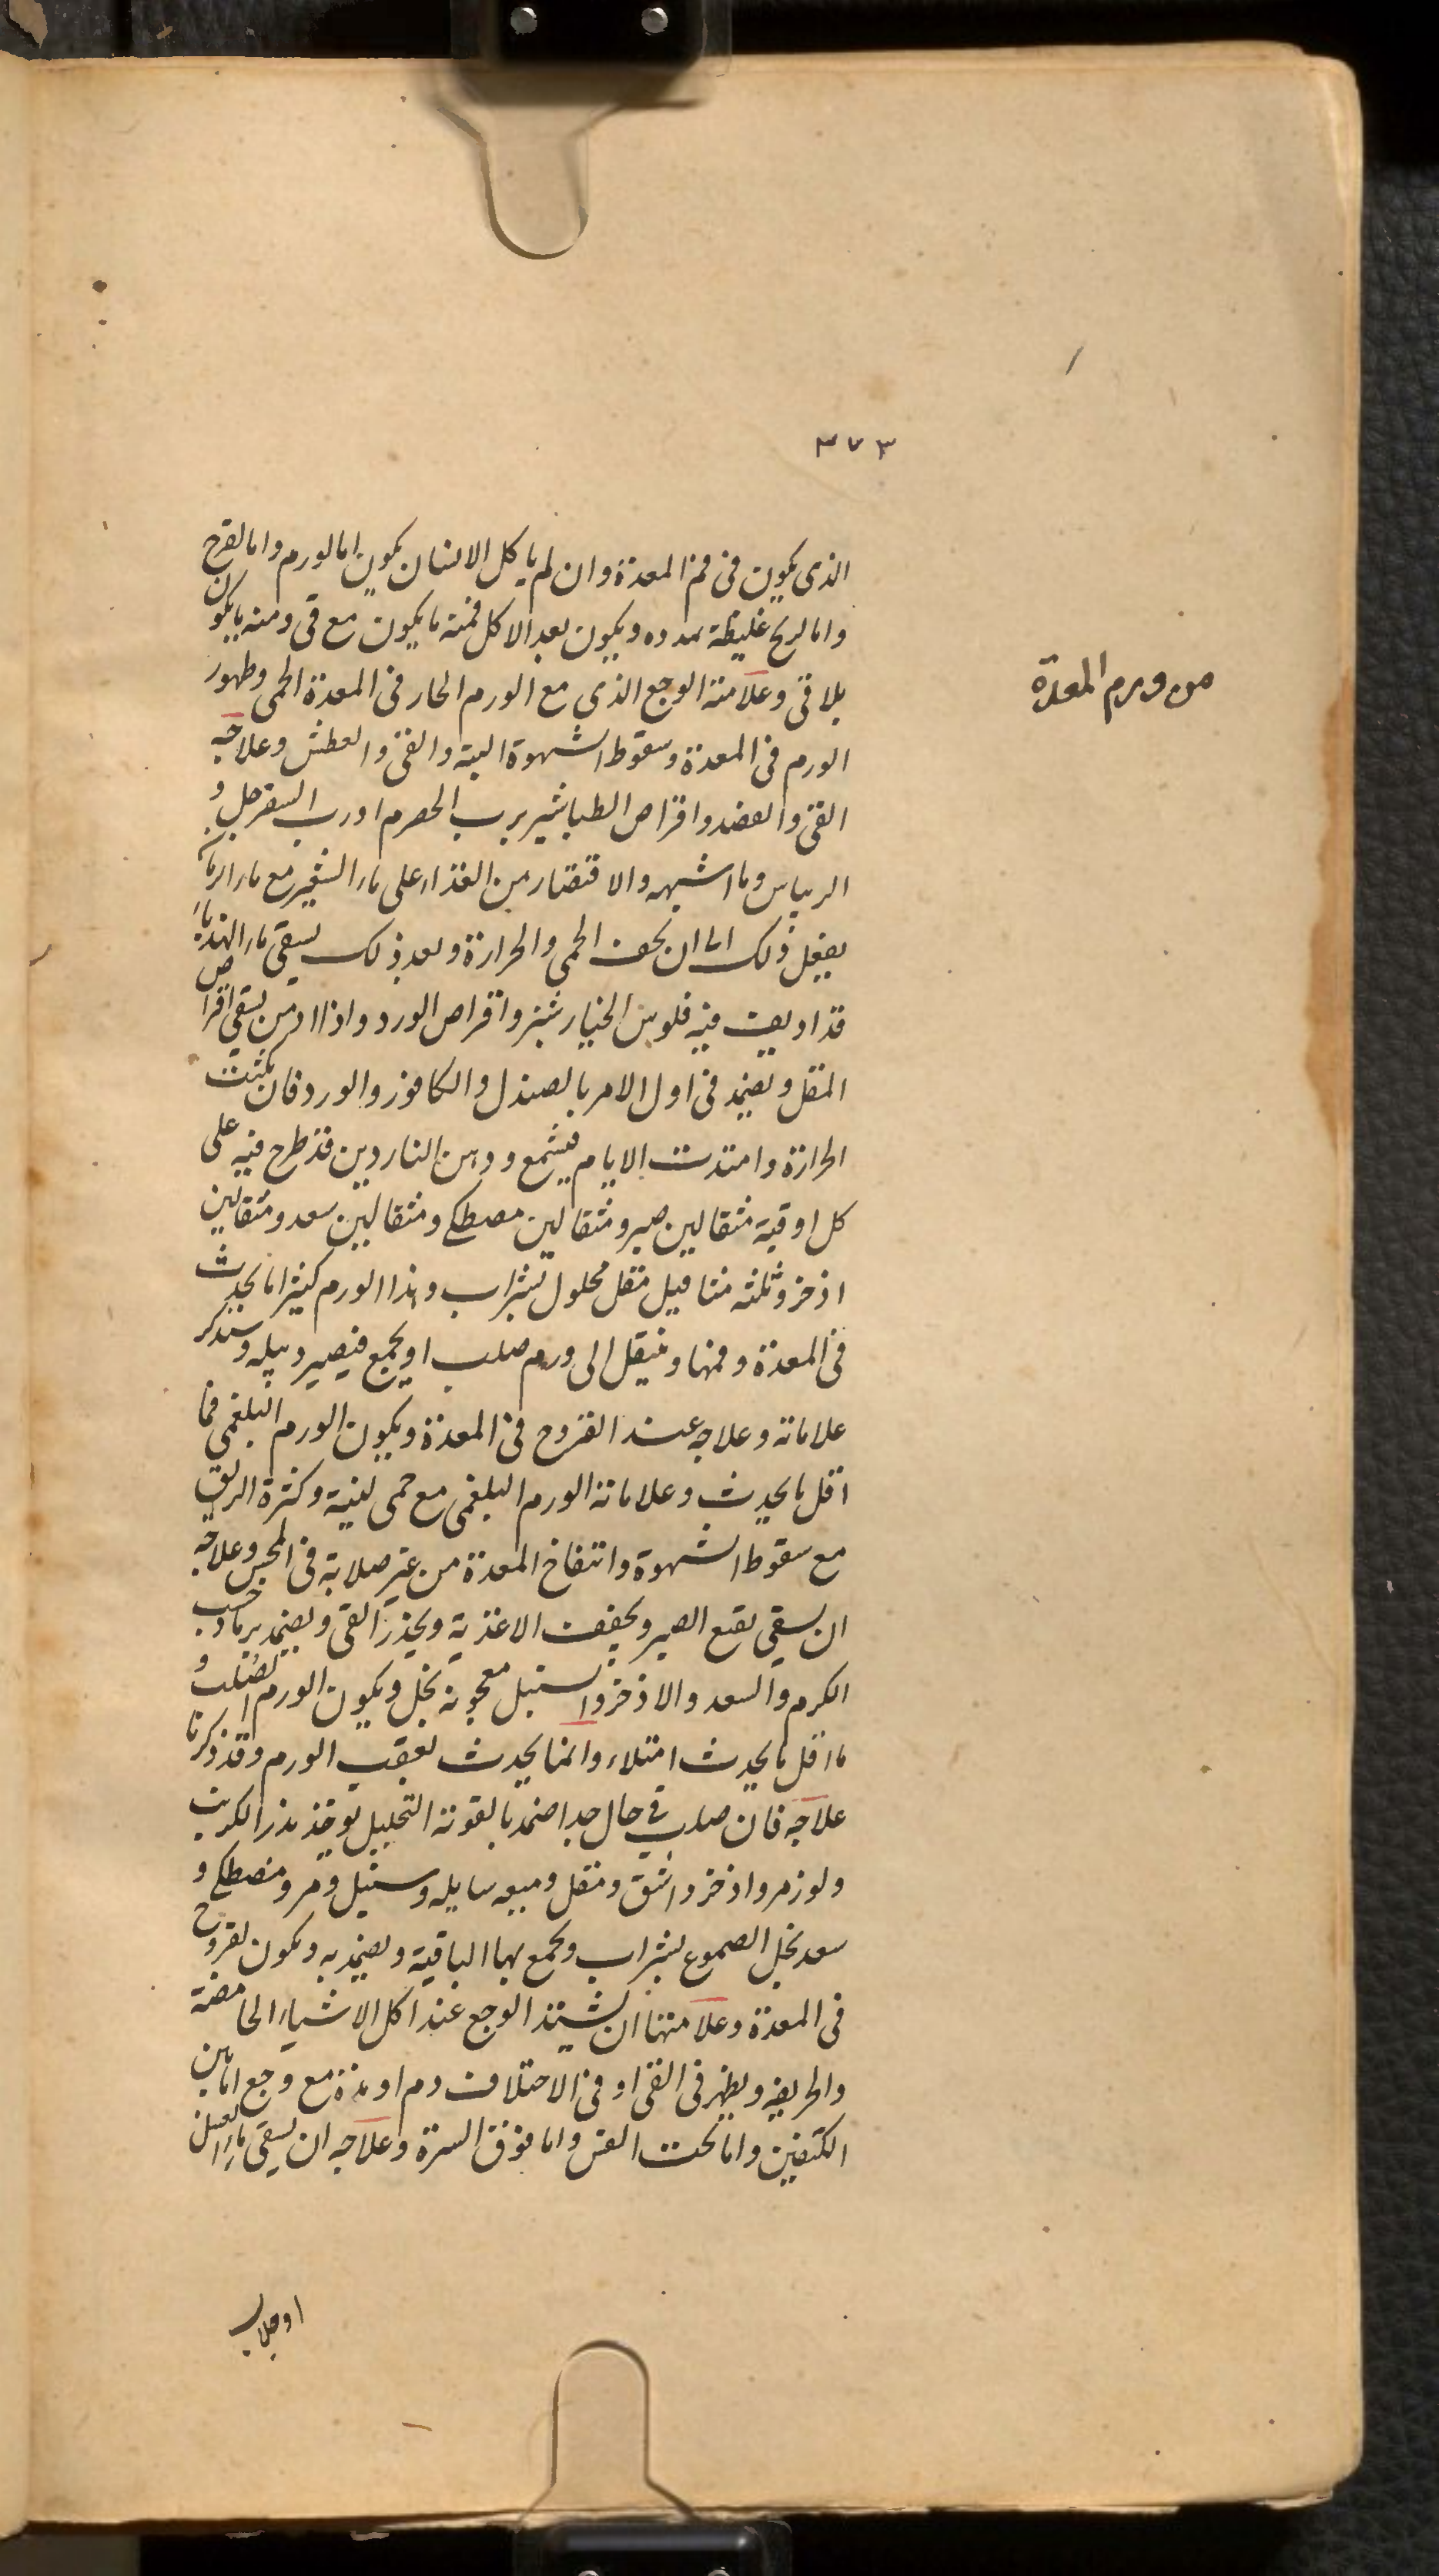 ٣٧٣
الذى يكون فى فم المعدة وان لم ياكل الانسان يكون اما لورم واما لقرح
واما لريح غليظة ممدده ويكون بعد الاكل فمنه ما يكون مع قى ومنه ما يكون
بلا قى وعلامة الوجع الذى مع الورم الحار فى المعدة الحمى وظهور
الورم فى المعدة وسقوط الشهوة البتة والقى والعطش وعلاجه
القى والفصد واقراص الطباشير برب الحصرم او رب السفرجل و
الريباس وما اشبهه والاقتصار من الغذاء على ماء الشعير مع ماء الرمان
يفعل ذلك الى ان تخف الحمى والحرارة وبعد ذلك يسقى ماء الهندباء
قد اديف فيه فلوس الخيار شنبر واقراص الورد واذا ازمن يسقى اقراص
المقل ويضمد فى اول الامر بالصندل والكافور والورد فان مكثت
الحرارة وامتدت الايام فيشمع ودهن الناردين قد طرح فيه على
كل اوقية مثقالين صبر ومثقالين مصطكى ومثقالين سعد ومثقالين
اذخر وثلثه مثاقيل مقل محلول بشراب وهذا الورم كثيرا ما يحدث
فى المعدة وفمها وينتقل الى ورم صلب او يجمع فيصير دبيله وسنذكر
علاماته وعلاجه عند القروح فى المعدة ويكون الورم البلغمى فما
اقل ما يحدث وعلاماته الورم البلغمى مع حمى لينة وكثرة الريق
مع سقوط الشهوة وانتفاخ المعدة من غير صلابة فى المجس وعلاجه
ان يسقى نقيع الصبر ويخفف الاغذية ويحذر القى ويضمد برماد خشب
الكرم والسعد والاذخر والسنبل معجونه بخل ويكون الورم الصلب و
ما اقل ما يحدث ابتداء وانما يحدث بعقب الورم وقد ذكرنا
علاجه فان صلب فى حال جدا ضمد بالقوية التحليل يوخذ بذر الكرنب
ولوز مر واذخر واشق ومقل وميعه سايله وسنبل ومر ومصطكى و
سعد تحل الصموغ بشراب وتجمع بها الباقية ويضمد به ويكون لقروح
فى المعدة وعلامتها ان يشتد الوجع عند اكل الاشياء الحامضة
والحريفه ويظهر فى القى او فى الاختلاف دم او مدة مع وجع اما بين
الكتفين واما تحت القس واما فوق السرة وعلاجه ان يسقى ماء العسل
او جلاب
من ورم المعدة